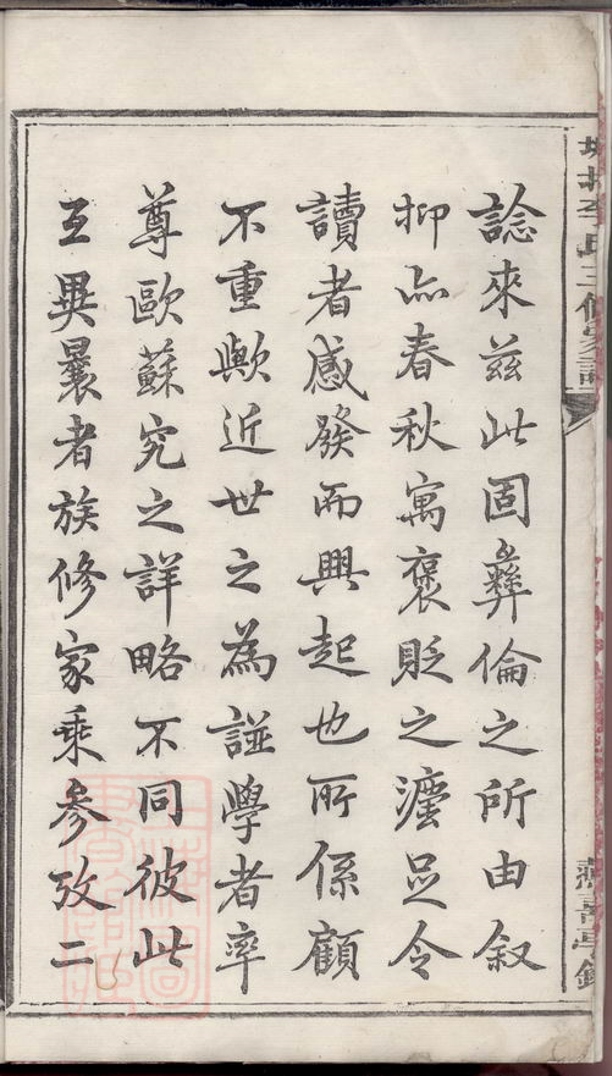 諗來茲此固彝倫之所由叙
抑亦春秋寓褒貶之灋足令
讀者感發而興起也所係顧
不重歟近世之為譜學者率
尊歐蘇究之詳略不同彼此
互異曩者族修家乘參攷二
李氏三修家譜